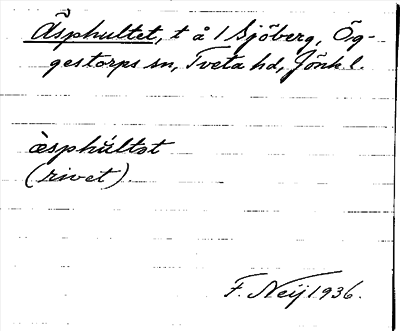 Äsphultet, t å 1 Sjöberg, Ög-
gestorps sn, Tveta hd, Jönk l.
èsphúltət
(rivet)
F. Neij 1936.